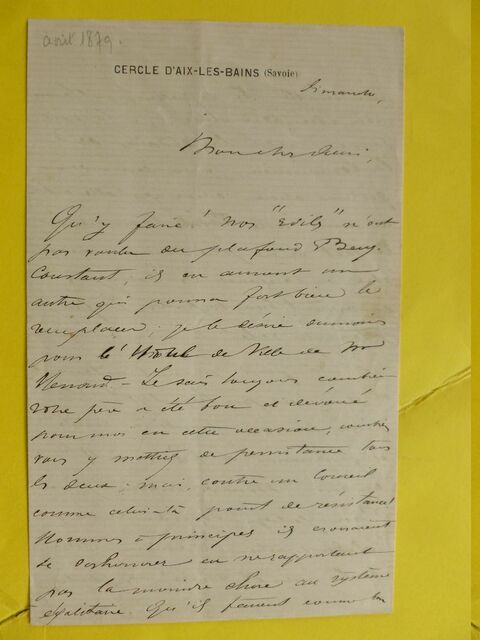 avril 1879.
CERCLE D'AIX-LES-BAINS (Savoie)
Dimanche,
Mon cher ami,
Qu'y faire! Nos "Edils" n'ont
pas voulu du plafond de Benj.
Constant, ils en auront un
autre qui pourra fort bien le
remplacer; je le désire
pour l'Hôtel de Ville de
Je sais toujours combien
votre père a été bon et dévoué
pour moi en cette occasion, combien
vous y mettez de persistance tous
les deux; mais, contre un Conseil
comme celui-là point de résistance!
Hommes à principes ils croiraient
se deshonorer en ne rapportant
pas la moindre chose au système
égalitaire. Qu'ils fassent comme